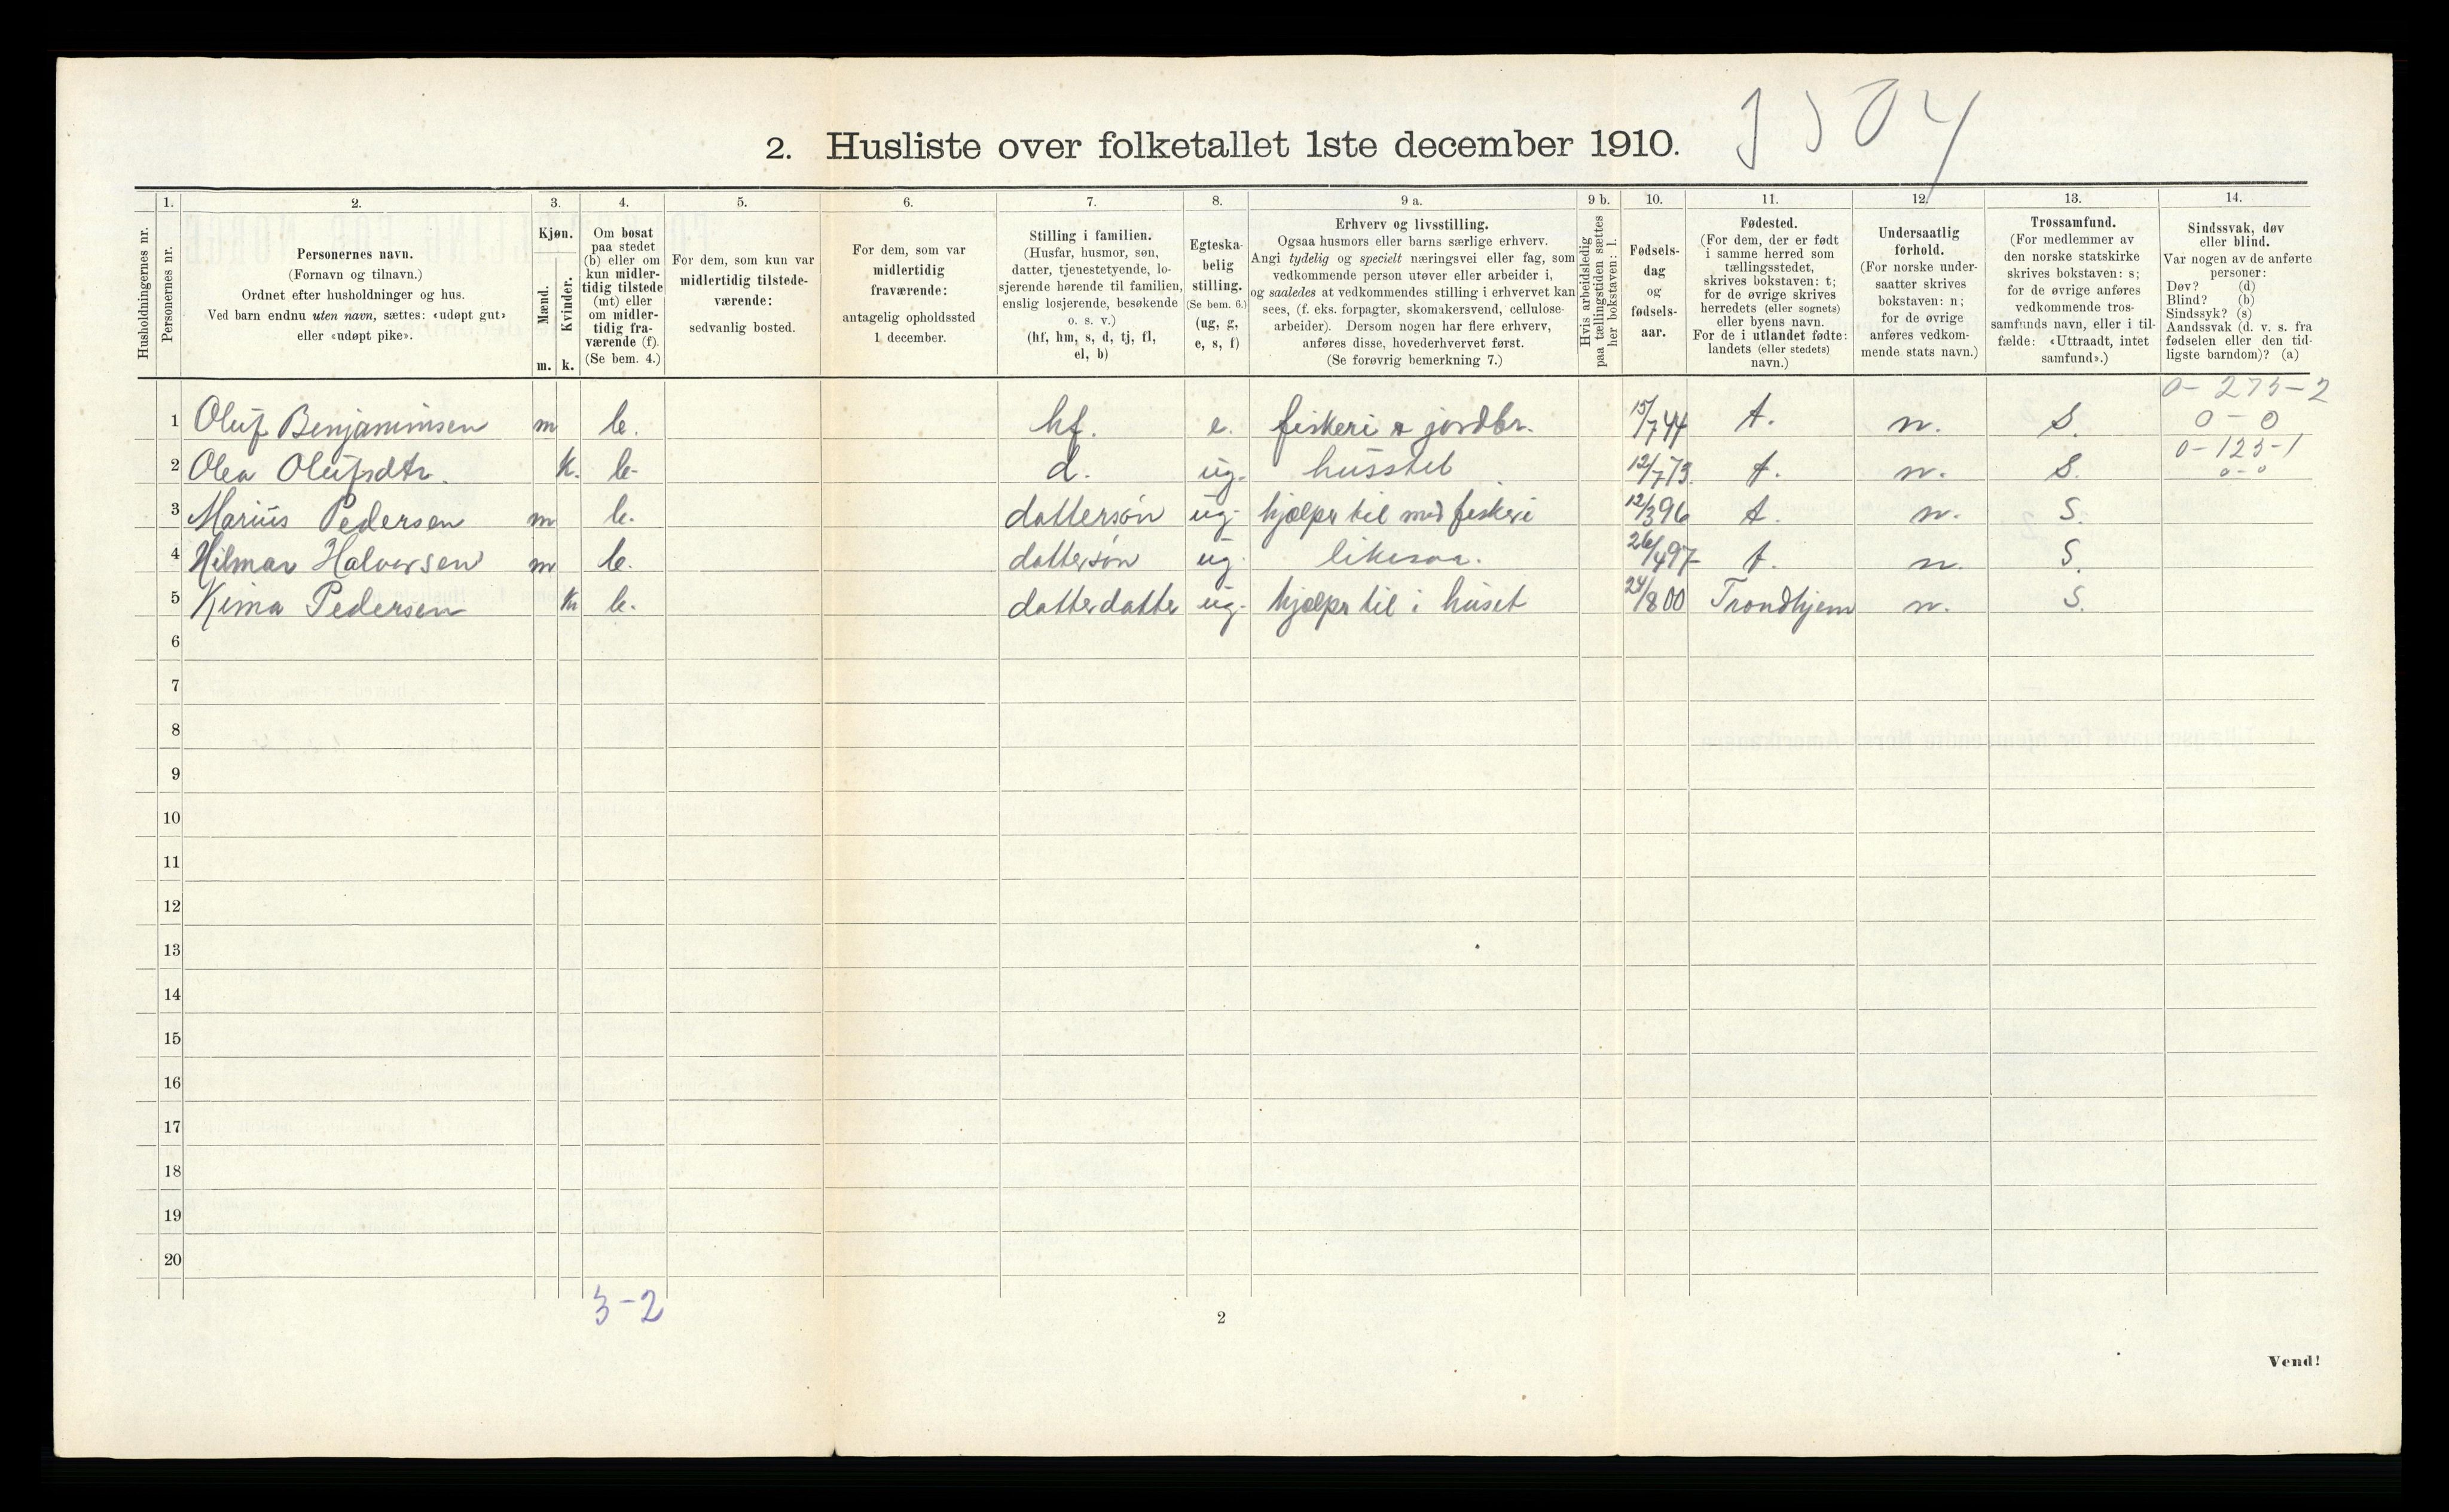 2. Husliste over folketallet 1ste december 1910.
1. 2. 3. 4. 5. 6. 7. 8. 9 a. 9 b. 10. 11. 12. 13. 14.
Husholdningernes nr.
Personernes nr.
Personernes navn.
(Fornavn og tilnavn.)
Ordnet efter husholdninger og hus.
Ved barn endnu uten navn, sættes: «udøpt gut»
eller «udøpt pike».
Kjøn.
Mænd.
Kvinder.
m. k.
Om bosat
paa stedet
(b) eller om
kun midler-
tidig tilstede
(mt) eller
om midler-
tidig fra-
værende (f).
(Se bem. 4.)
For dem, som kun var
midlertidig tilstede-
værende:
sedvanlig bosted.
For dem, som var
midlertidig
fraværende:
antagelig opholdssted
1 december.
Stilling i familien.
(Husfar, husmor, søn,
datter, tjenestetyende, lo-
sjerende hørende til familien,
enslig losjerende, besøkende
o. s. v.)
(hf, hm, s, d, tj, fl,
el, b)
Egteska-
belig
stilling.
(Se bem. 6.)
(ug, g,
e, s, f)
Erhverv og livsstilling.
Ogsaa husmors eller barns særlige erhverv.
Angi tydelig og specielt næringsvei eller fag, som
vedkommende person utøver eller arbeider i,
og saaledes at vedkommendes stilling i erhvervet kan
sees, (f. eks. forpagter, skomakersvend, cellulose-
arbeider). Dersom nogen har flere erhverv,
anføres disse, hovederhvervet først.
(Se forøvrig bemerkning 7.)
Hvis arbeidsledig
paa tællingstiden sættes
her bokstaven: l.
Fødsels-
dag
og
fødsels-
aar.
Fødested.
(For dem, der er født
i samme herred som
tællingsstedet,
skrives bokstaven: t;
for de øvrige skrives
herredets (eller sognets)
eller byens navn.
For de i utlandet fødte:
landets (eller stedets)
navn.)
Undersaatlig
forhold.
(For norske under-
saatter skrives
bokstaven: n;
for de øvrige
anføres vedkom-
mende stats navn.)
Trossamfund.
(For medlemmer av
den norske statskirke
skrives bokstaven: s;
for de øvrige anføres
vedkommende tros-
samfunds navn, eller i til-
fælde: «Uttraadt, intet
samfund».)
Sindssvak, døv
eller blind.
Var nogen av de anførte
personer:
Døv? (d)
Blind? (b)
Sindssyk? (s)
Aandssvak (d. v. s. fra
fødselen eller den tid-
ligste barndom)? (a)
0-275-2
1 Oluf Benjaminsen m b. hf. e. fiskeri & jordbr. 15/7 44 t. n. S. 0-0
0-125-1
2 Olea Olufsdtr. k. b- d. ug. husstel 12/7 73. t. n. S. 0-0
3 Marius Pedersen m b. dattersøn ug. hjælper til med fiskeri 12/3 96 t. n. S.
4 Hilmar Halvorsen m b. dattersøn ug. likesaa. 26/4 97 t. n. S.
5 Kima Pedersen k b. datterdatter ug. hjælper til i huset 24/8 00 Trondhjem n. S.
6
7
8
9
10
11
12
13
14
15
16
17
18
19
20
3-2
2
Vend!